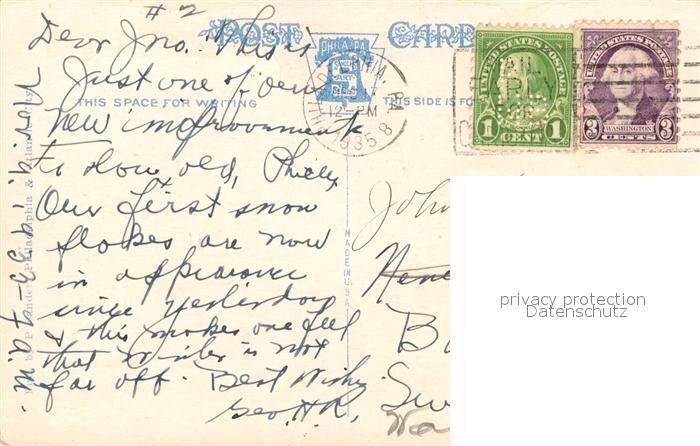 # 2
POST CARD
Dear Jno. This is
Just one of our
THIS SPACE FOR WRITING
THIS SIDE IS FO
new improvement
to down old, Philly
Our first snow
flakes are now
in appearance
since yesterday
& this makes one feel
that Winter is not
far off. Best Wishes
Geo. H.R.
PHILA. PA.
PHILADELPHIA, PA.
12-PM
1935
8
MAIL
EARLY
FOR
UNITED STATES POSTAGE
1 CENT 1
UNITED STATES POSTAGE
WASHINGTON
3 CENTS 3
MADE IN U.S.A.
John
Bo
Sw
privacy protection
Datenschutz